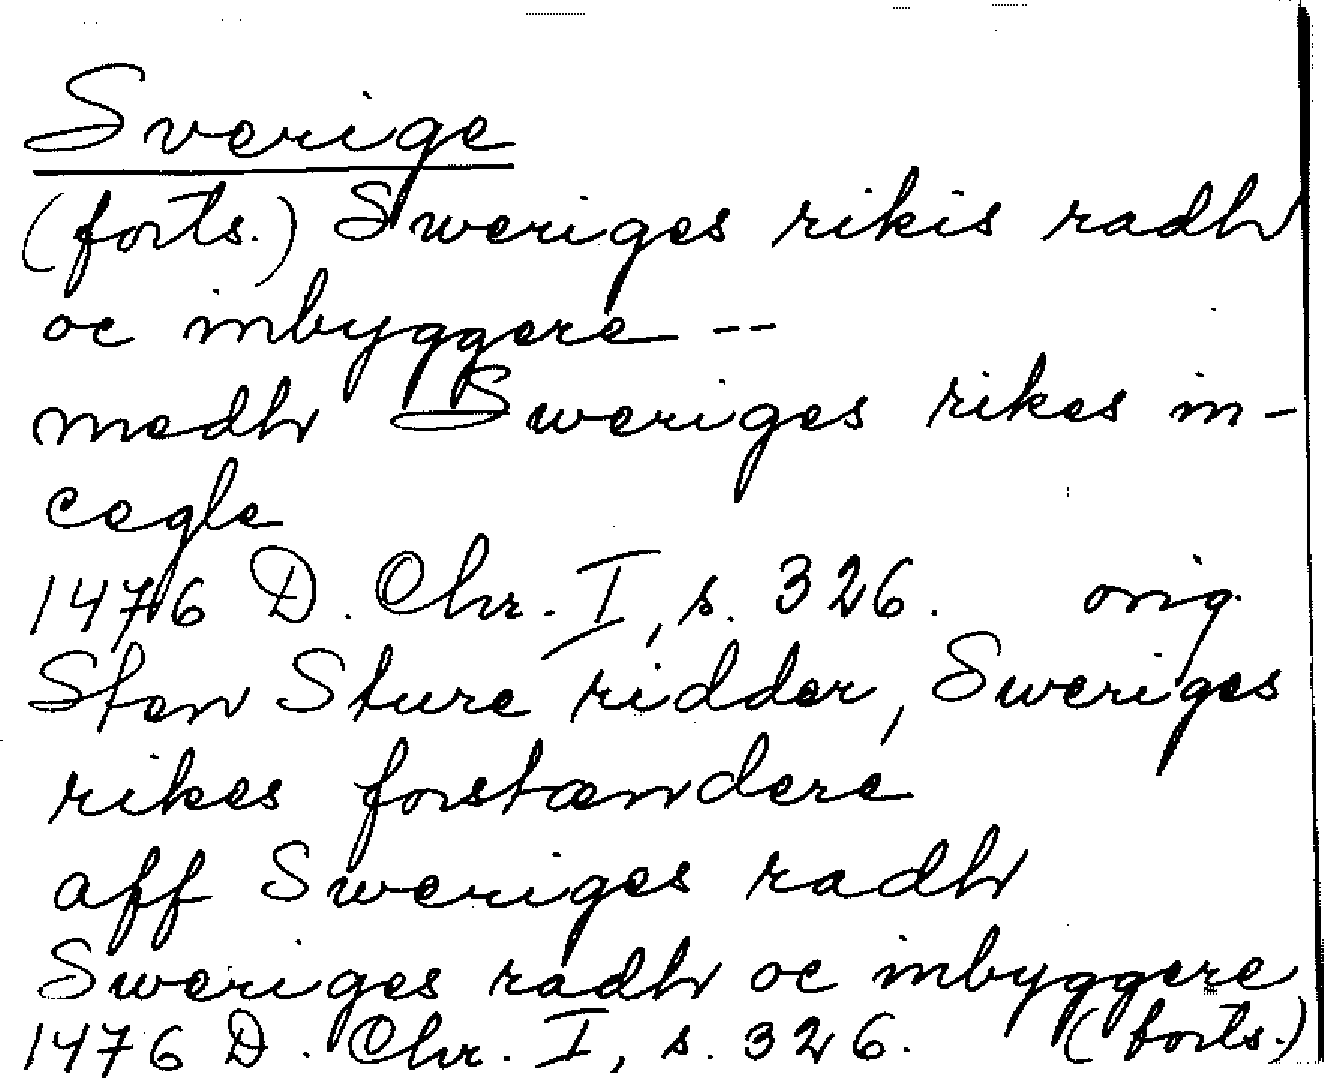 Sverige
(forts.) Sweriges rikis radh
oc inbyggere --
medh Sweriges rikes in-
cegle
1476 D. Chr. I, s. 326. orig.
Sten Sture ridder, Sweriges
rikes forstændere
aff Sweriges radh
Sweriges radh oc inbyggere
1476 D. Chr. I, s. 326. (forts.)